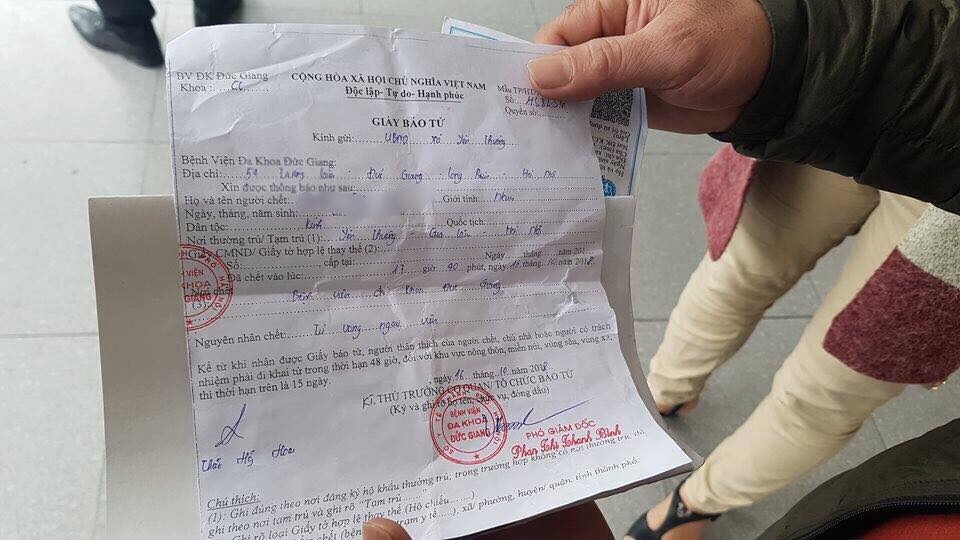 BV ĐK Đức Giang
Khoa :.....CC.....
CỘNG HÒA XÃ HỘI CHỦ NGHĨA VIỆT NAM
Độc lập- Tự do- Hạnh phúc
Mẫu TP/HT/
Số:
Quyển số:
GIẤY BÁO TỬ
Kính gửi: UBND xã Yên Thường
Bệnh Viện Đa Khoa Đức Giang:
Địa chỉ: 54 Trường Lâm Đức Giang Long Biên Hà Nội
Xin được thông báo như sau:
Họ và tên người chết: Giới tính: Nam
Ngày, tháng, năm sinh:
Dân tộc: Kinh Quốc tịch:
Nơi thường trú/ Tạm trú (1): Yên Thường Gia Lâm Hà Nội
Giấy CMND/ Giấy tờ hợp lệ thay thế (2):
Số, cấp tại: Ngày tháng năm 201
Đã chết vào lúc: 17 giờ 40 phút, ngày 16 tháng 10 năm 2018
Nơi chết
(3): Bệnh viện đa khoa Đức Giang
Nguyên nhân chết: Tử vong ngoại viện
Kể từ khi nhận được Giấy báo tử, người thân thích của người chết, chủ nhà hoặc người có trách
nhiệm phải đi khai tử trong thời hạn 48 giờ, đối với khu vực nông thôn, miền núi, vùng sâu, vùng xa,
thì thời hạn trên là 15 ngày.
, ngày 16 tháng 10 năm 2018
KT. THỦ TRƯỞNG CƠ QUAN/ TỔ CHỨC BÁO TỬ
(Ký và ghi rõ họ tên, chức vụ, đóng dấu)
BỆNH VIỆN
ĐA KHOA
ĐỨC GIANG
PHÓ GIÁM ĐỐC
Phan Thị Thanh Bình
Chú thích:
(1): Ghi đúng theo nơi đăng ký hộ khẩu thường trú, trong trường hợp không có nơi thường trú, chỉ
ghi theo nơi tạm trú và ghi rõ "Tạm trú ......"
(2): Ghi rõ loại Giấy tờ hợp lệ thay thế (Hộ chiếu......)
trạm y tế....), xã/ phường, huyện/ quận, tỉnh thành phố.